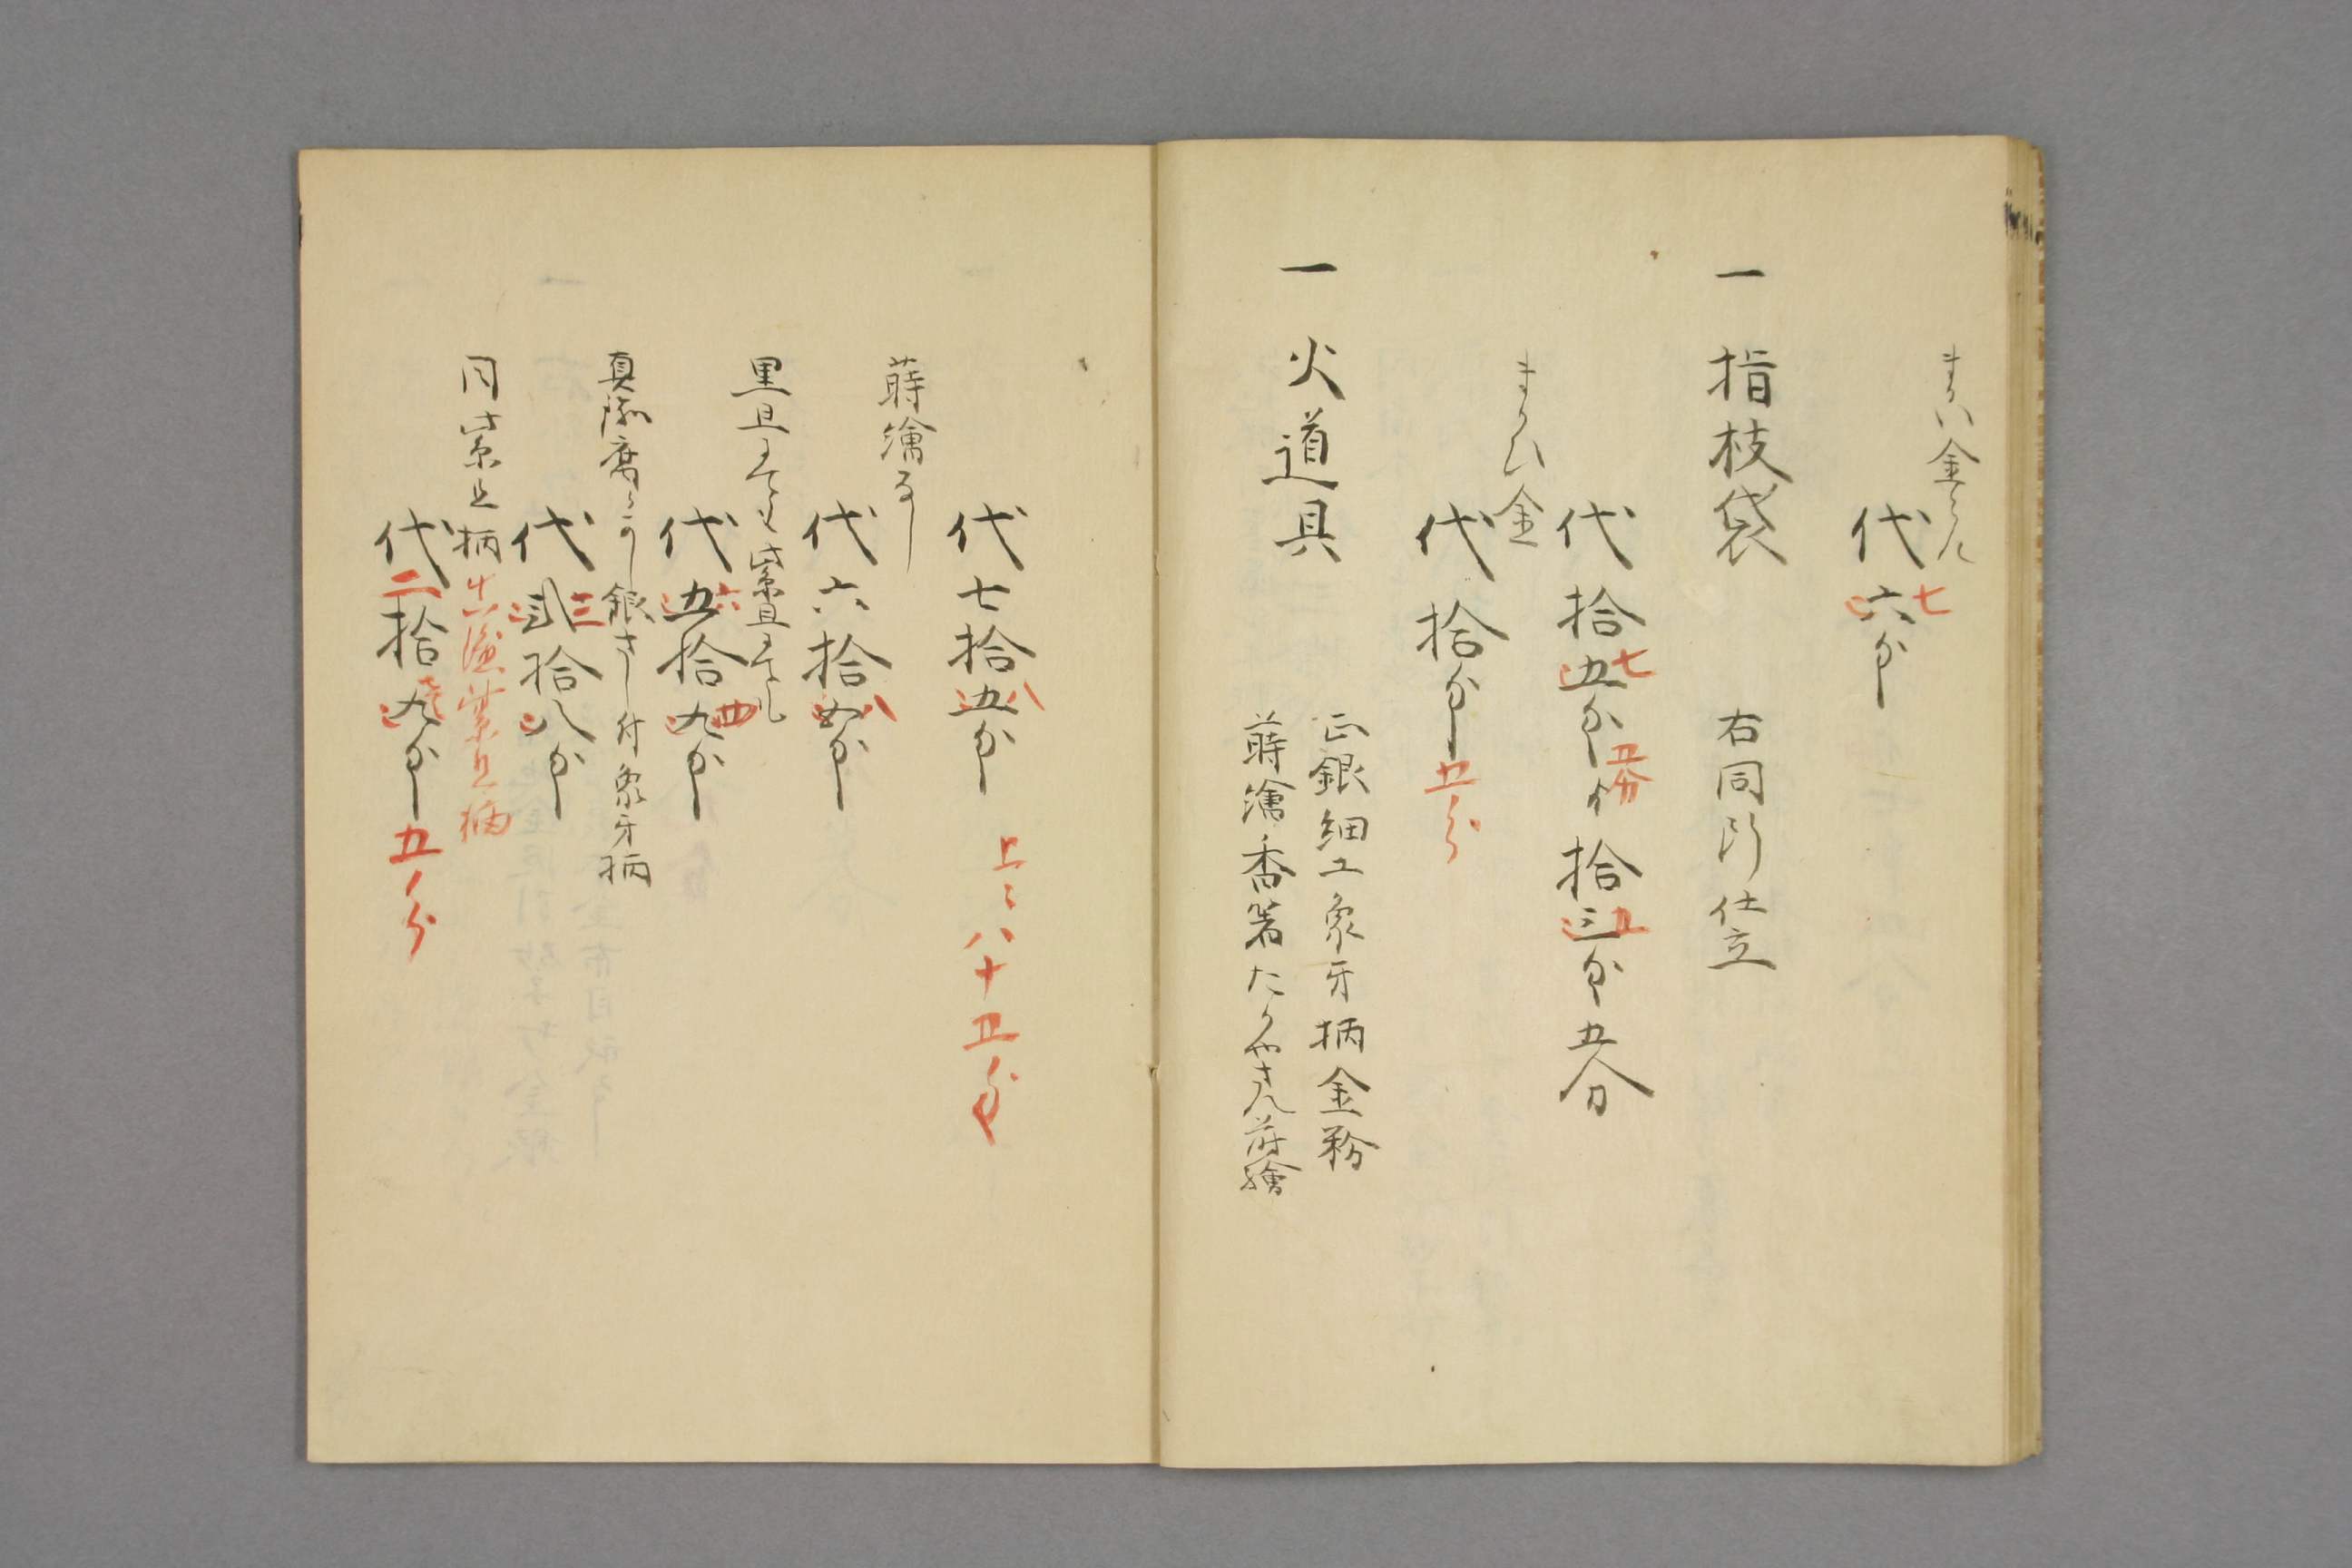 まかい金らん
代六匁
七
一 指枝袋 右同断仕立
代拾五匁 代拾三匁五分
七 五分 五
まかひ金
代拾匁
五分
一 火道具
正銀細工象牙柄金粉
蒔繪香箸たかやさん蒔繪
代七拾五匁
八
上々八十五匁
蒔繪なし
代六拾四匁
八
黒旦にても紫旦にても
代五拾九匁
六 四
真鍮 銀さし付象牙柄
代弐拾八匁
三
同紫旦柄
紫旦柄
代拾九匁
二 五分